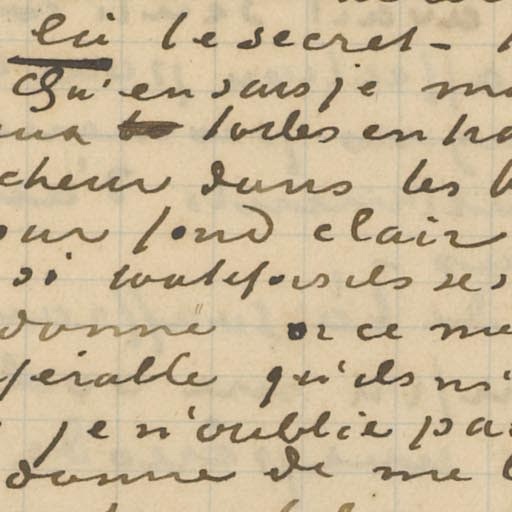 lui le secret -
Qu'en sais je
toiles en
dans les
pour fond clair
si toutefois ils
donne or ce me
qu'ils
je n'oublie pas
donne de me